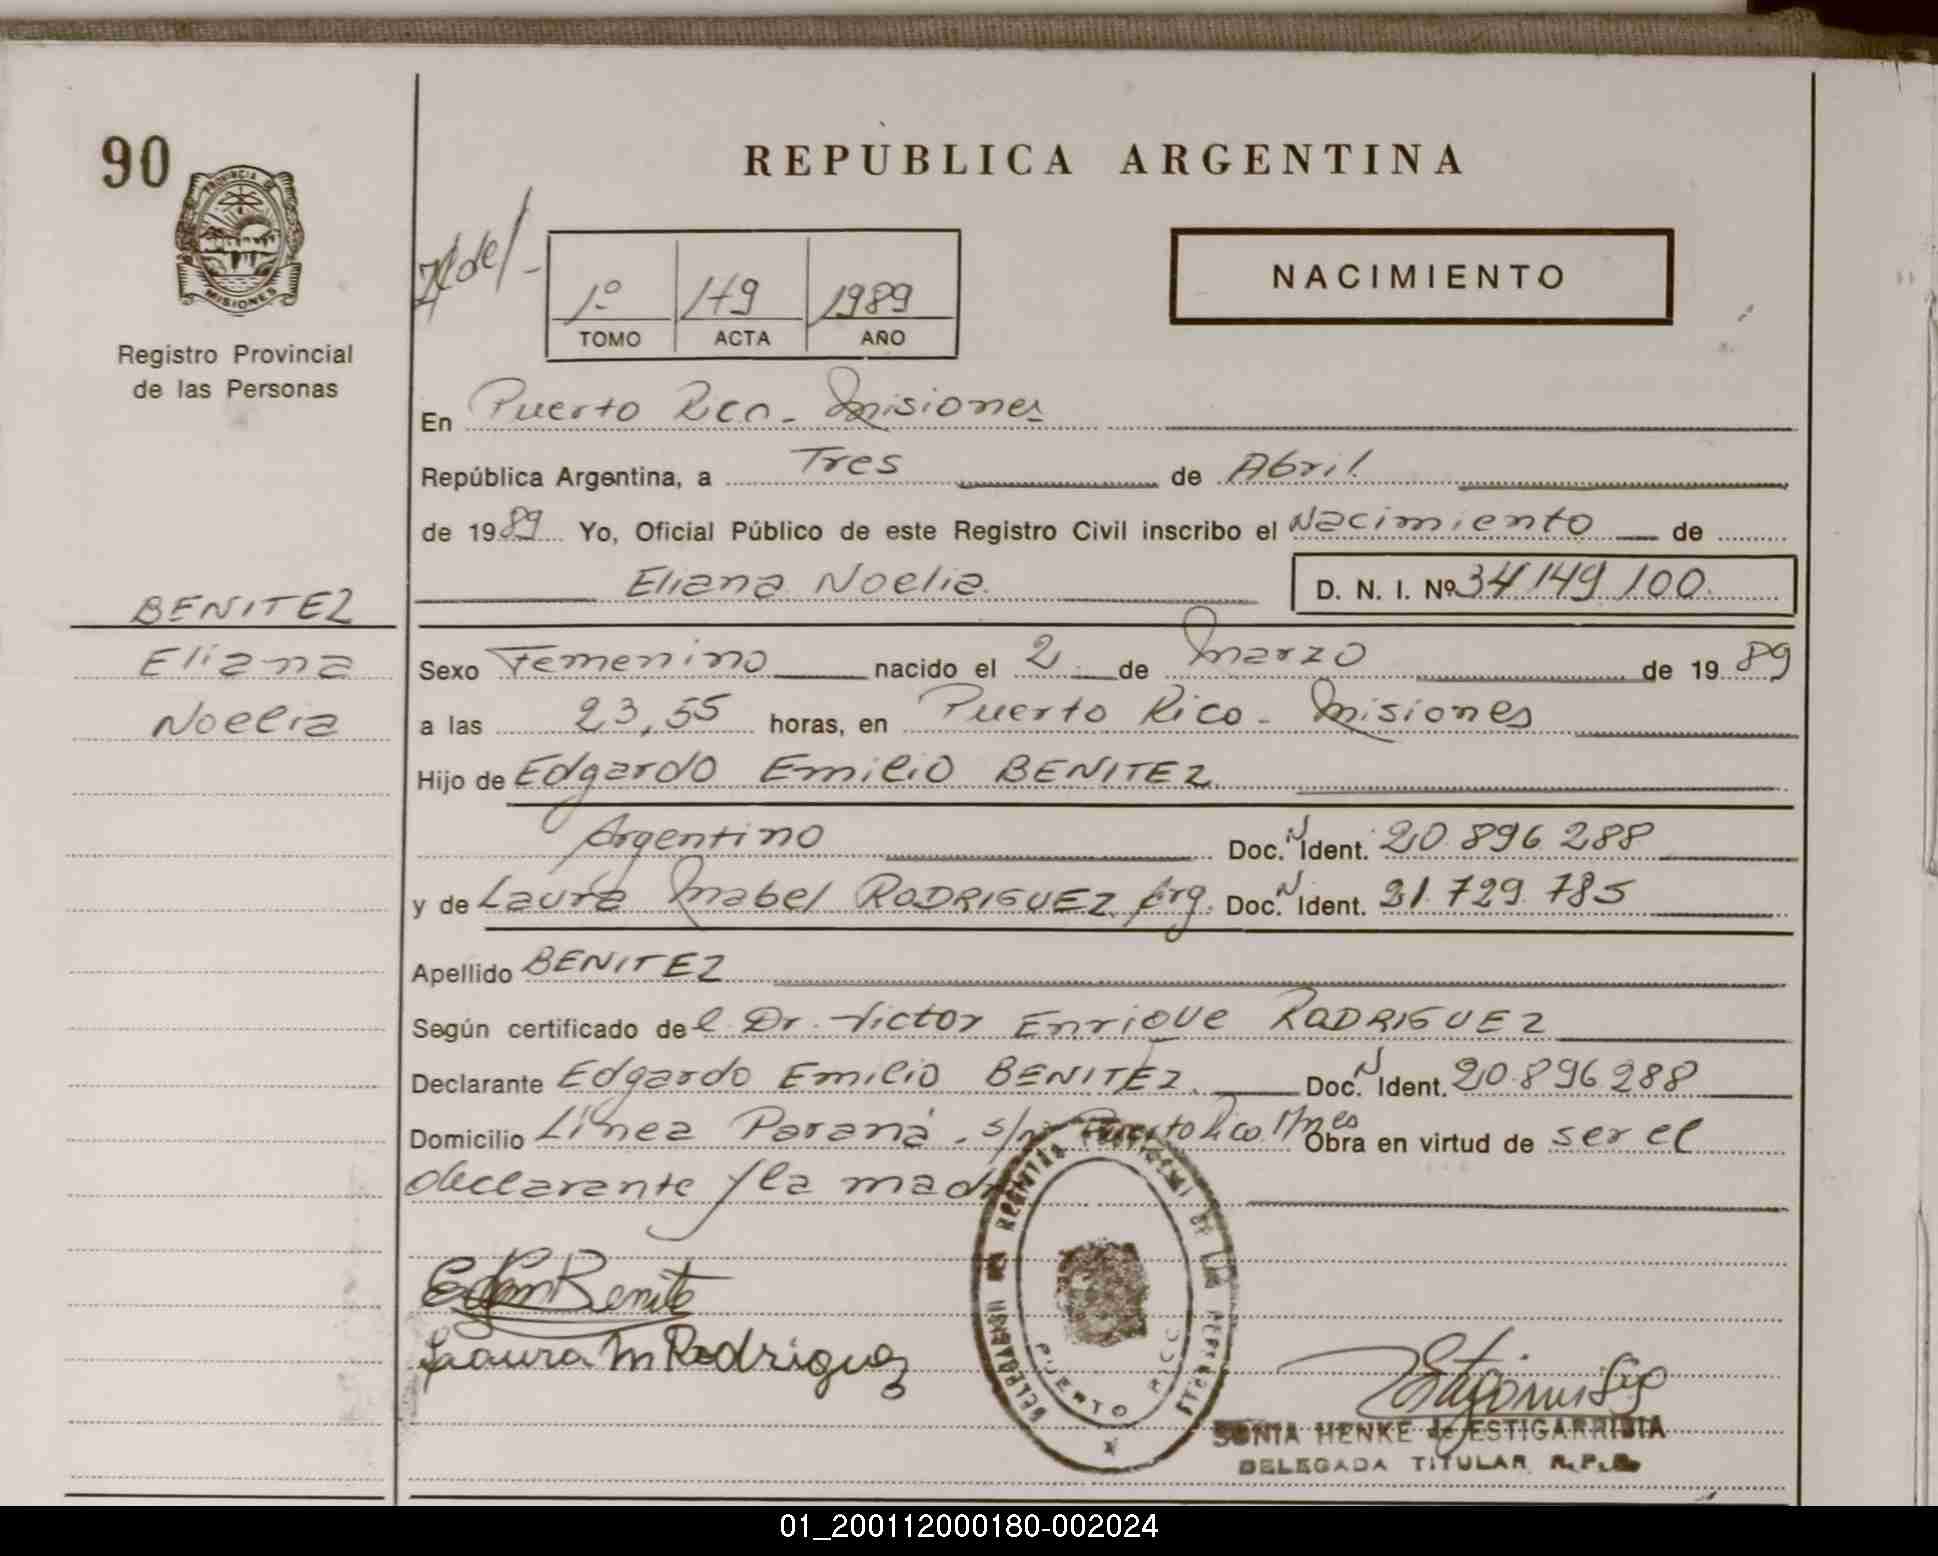 90
PROVINCIA DE
MISIONES
Registro Provincial
de las Personas
REPUBLICA ARGENTINA
1º 179 1989
TOMO ACTA AÑO
NACIMIENTO
En Puerto Rico - Misiones
República Argentina, a Tres de Abril
de 1989 Yo, Oficial Público de este Registro Civil inscribo el Nacimiento de
Eliana Noelia D. N. I. Nº 34 149 100
BENITEZ
Eliana
Noelia
Sexo Femenino nacido el 2 de Marzo de 1989
a las 23,55 horas, en Puerto Rico - Misiones
Hijo de Edgardo Emilio BENITEZ
Argentino Doc. N Ident. 20.896.288
y de Laura Mabel RODRIGUEZ Arg. Doc. N Ident. 21.729.785
Apellido BENITEZ
Según certificado del Dr. Victor Enrique RODRIGUEZ
Declarante Edgardo Emilio BENITEZ. Doc. N Ident. 20.896.288
Domicilio Línea Paraná. s/n Puerto Rico Mnes Obra en virtud de ser el
declarante y la madre
Benite
Laura M Rodriguez
DELEGACION DEL REGISTRO PROVINCIAL DE LAS PERSONAS
PUERTO RICO
SONIA HENKE de ESTIGARRIBIA
DELEGADA TITULAR R.P.P.
01_200112000180-002024